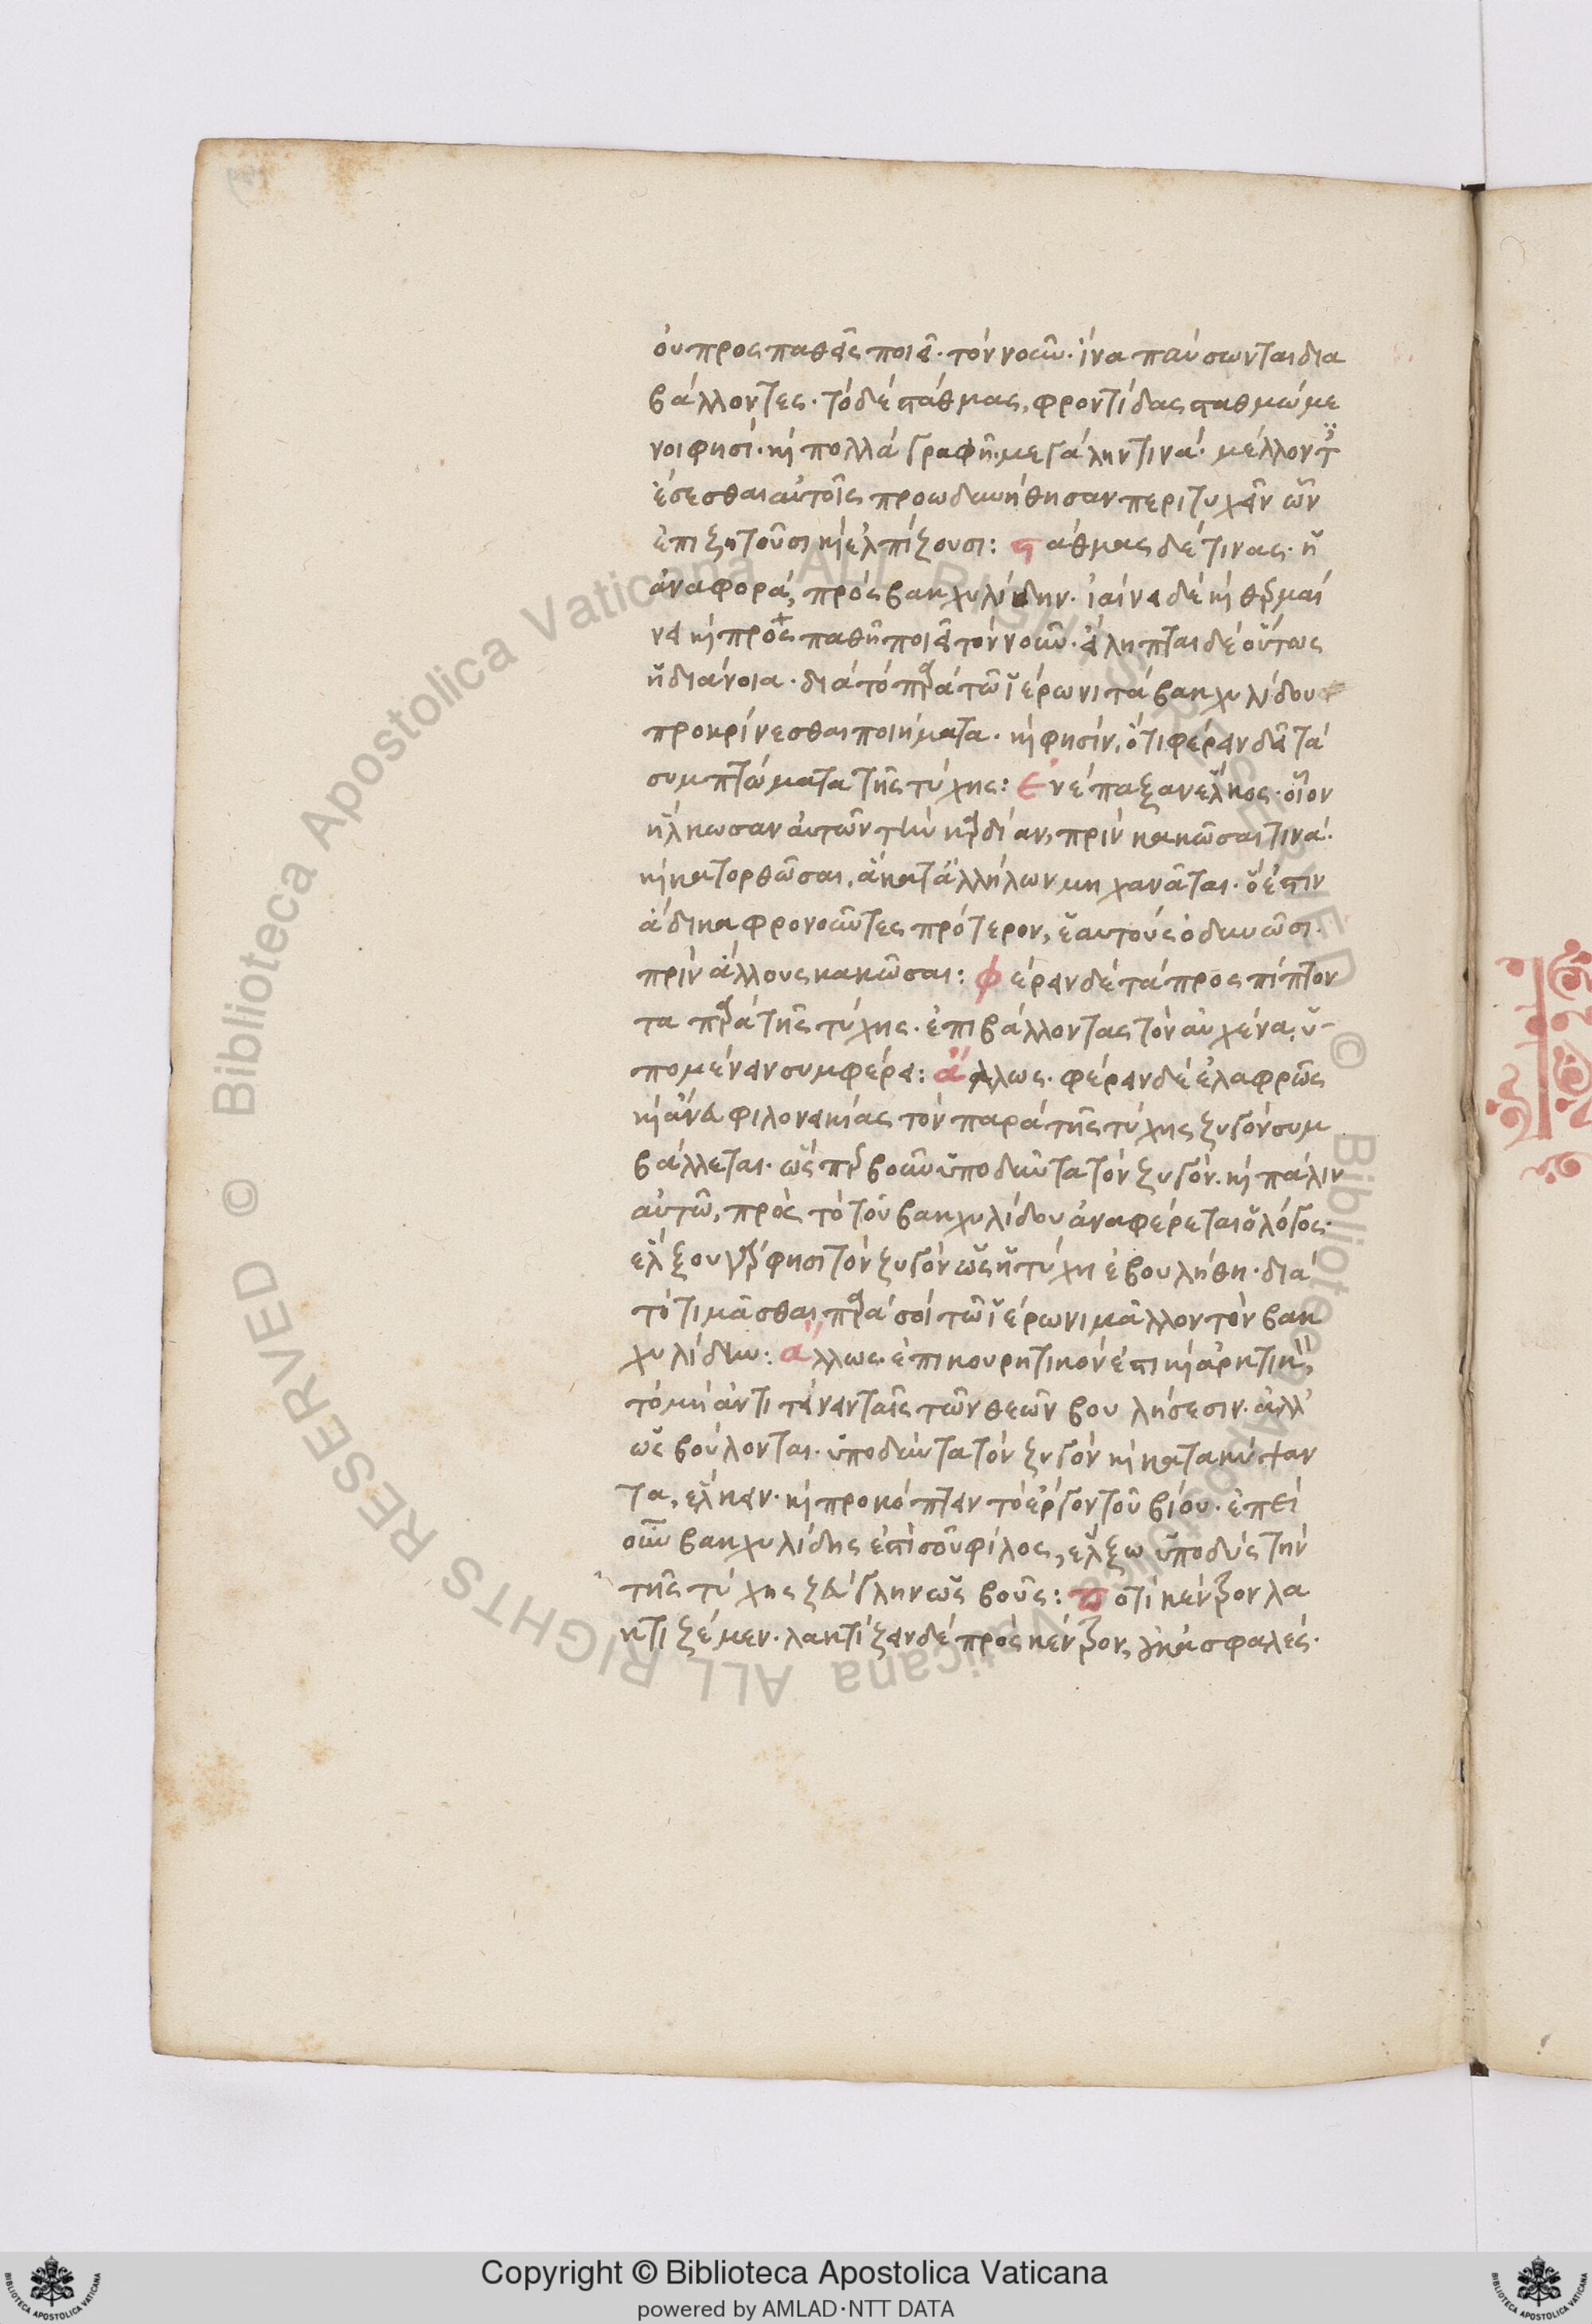 οὐ προσπαθεῖς ποιεῖ· τὸν νοῦν· ἵνα παύσωνται δια
βάλλοντες· τὸ δὲ στάθμας, φροντίδας σταθμώμε
νοι φησί· κỳ πολλὰ γραφῆ· μεγάλην τινά· μέλλοντ
ἔσεσθαι αὐτοῖς προωδευνήθησαν περιτυχεῖν ὧν
ἐπιζητοῦσι κỳ ἐλπίζουσι: στάθμας δέ τινας· ἡ
ἀναφορά, πρὸς βακχυλίδην· ἰαίνει δὲ κỳ θερμαί
νει κỳ προσπαθῆ ποιεῖ τὸν νοῦν· εἴληπται δὲ οὕτως
ἡ διάνοια· διὰ τὸ παρὰ τῶ ἱέρωνι τὰ βακχυλίδου
προκρίνεσθαι ποιήματα· κỳ φησίν, ὅτι φέρειν δεῖ τὰ
συμπτώματα τῆς τύχης: Ἐνέπαξαν ἕλκος· οἷον
ἥλκωσαν αὐτῶν τὴν καρδίαν, πρὶν κακῶσαι τινά·
κỳ κατορθῶσαι, ἃ κατ' ἀλλήλων μηχανᾶται· ὅ ἐστιν
ἄδικα φρονοῦντες πρότερον, ἑαυτοὺς ὀδυνῶσι·
πρὶν ἄλλους κακῶσαι: φέρειν δὲ τὰ προσπίπτον
τα παρὰ τῆς τύχης· ἐπιβάλλοντας τὸν αὐχένα, ὑ-
πομένειν συμφέρει: ἄλλως· φέρειν δὲ ἐλαφρῶς
κỳ ἄνευ φιλονεικίας τὸν παρὰ τῆς τύχης ζυγὸν συμ
βάλλεται· ὡσπερ βοῦν ὑποδῦντα τὸν ζυγόν· κỳ πάλιν
αὐτῶ, πρὸς τὸ τοῦ βακχυλίδου ἀναφέρεται ὁ λόγος·
ἕλξου γάρ φησι τὸν ζυγὸν ὡς ἡ τύχη ἐβουλήθη· διὰ
τὸ τιμᾶσθαι παρά σοι τῶ ἱέρωνι μᾶλλον τὸν βακ
χυλίδην: ἄλλως· ἐπικουρητικόν ἐστι κỳ ἀρητικ
τὸ μὴ ἀντιτείνειν ταῖς τῶν θεῶν βουλήσεσιν· ἀλλ'
ὡς βούλονται· ὑποδύντα τὸν ζυγὸν κỳ κατακύψαν
τα, ἕλκειν· κỳ προκόπτειν τὸ ἔργον τοῦ βίου· ἐπεὶ
οὖν βακχυλίδης ἐστί σου φίλος, ἕλξω ὑποδὺς τὴν
τῆς τύχης ζεύγλην ὡς βοῦς: ποτὶ κέντρον λα
κτιζέμεν· λακτίζειν δὲ πρὸς κέντρον, οὐκ ἀσφαλές·
Copyright © Biblioteca Apostolica Vaticana
powered by AMLAD·NTT DATA